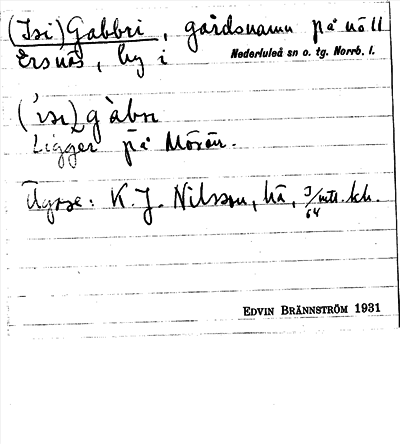 (Isi)Gabbri, gårdsnamn på nö 11
Ersnäs, by i Nederluleå sn o. tg. Norrb. l.
('ısı) g àbrı
Ligger på Mörön.
Ägare: K. J. Nilsson, hä, 3/64 mtl. kh.
EDVIN BRÄNNSTRÖM 1931